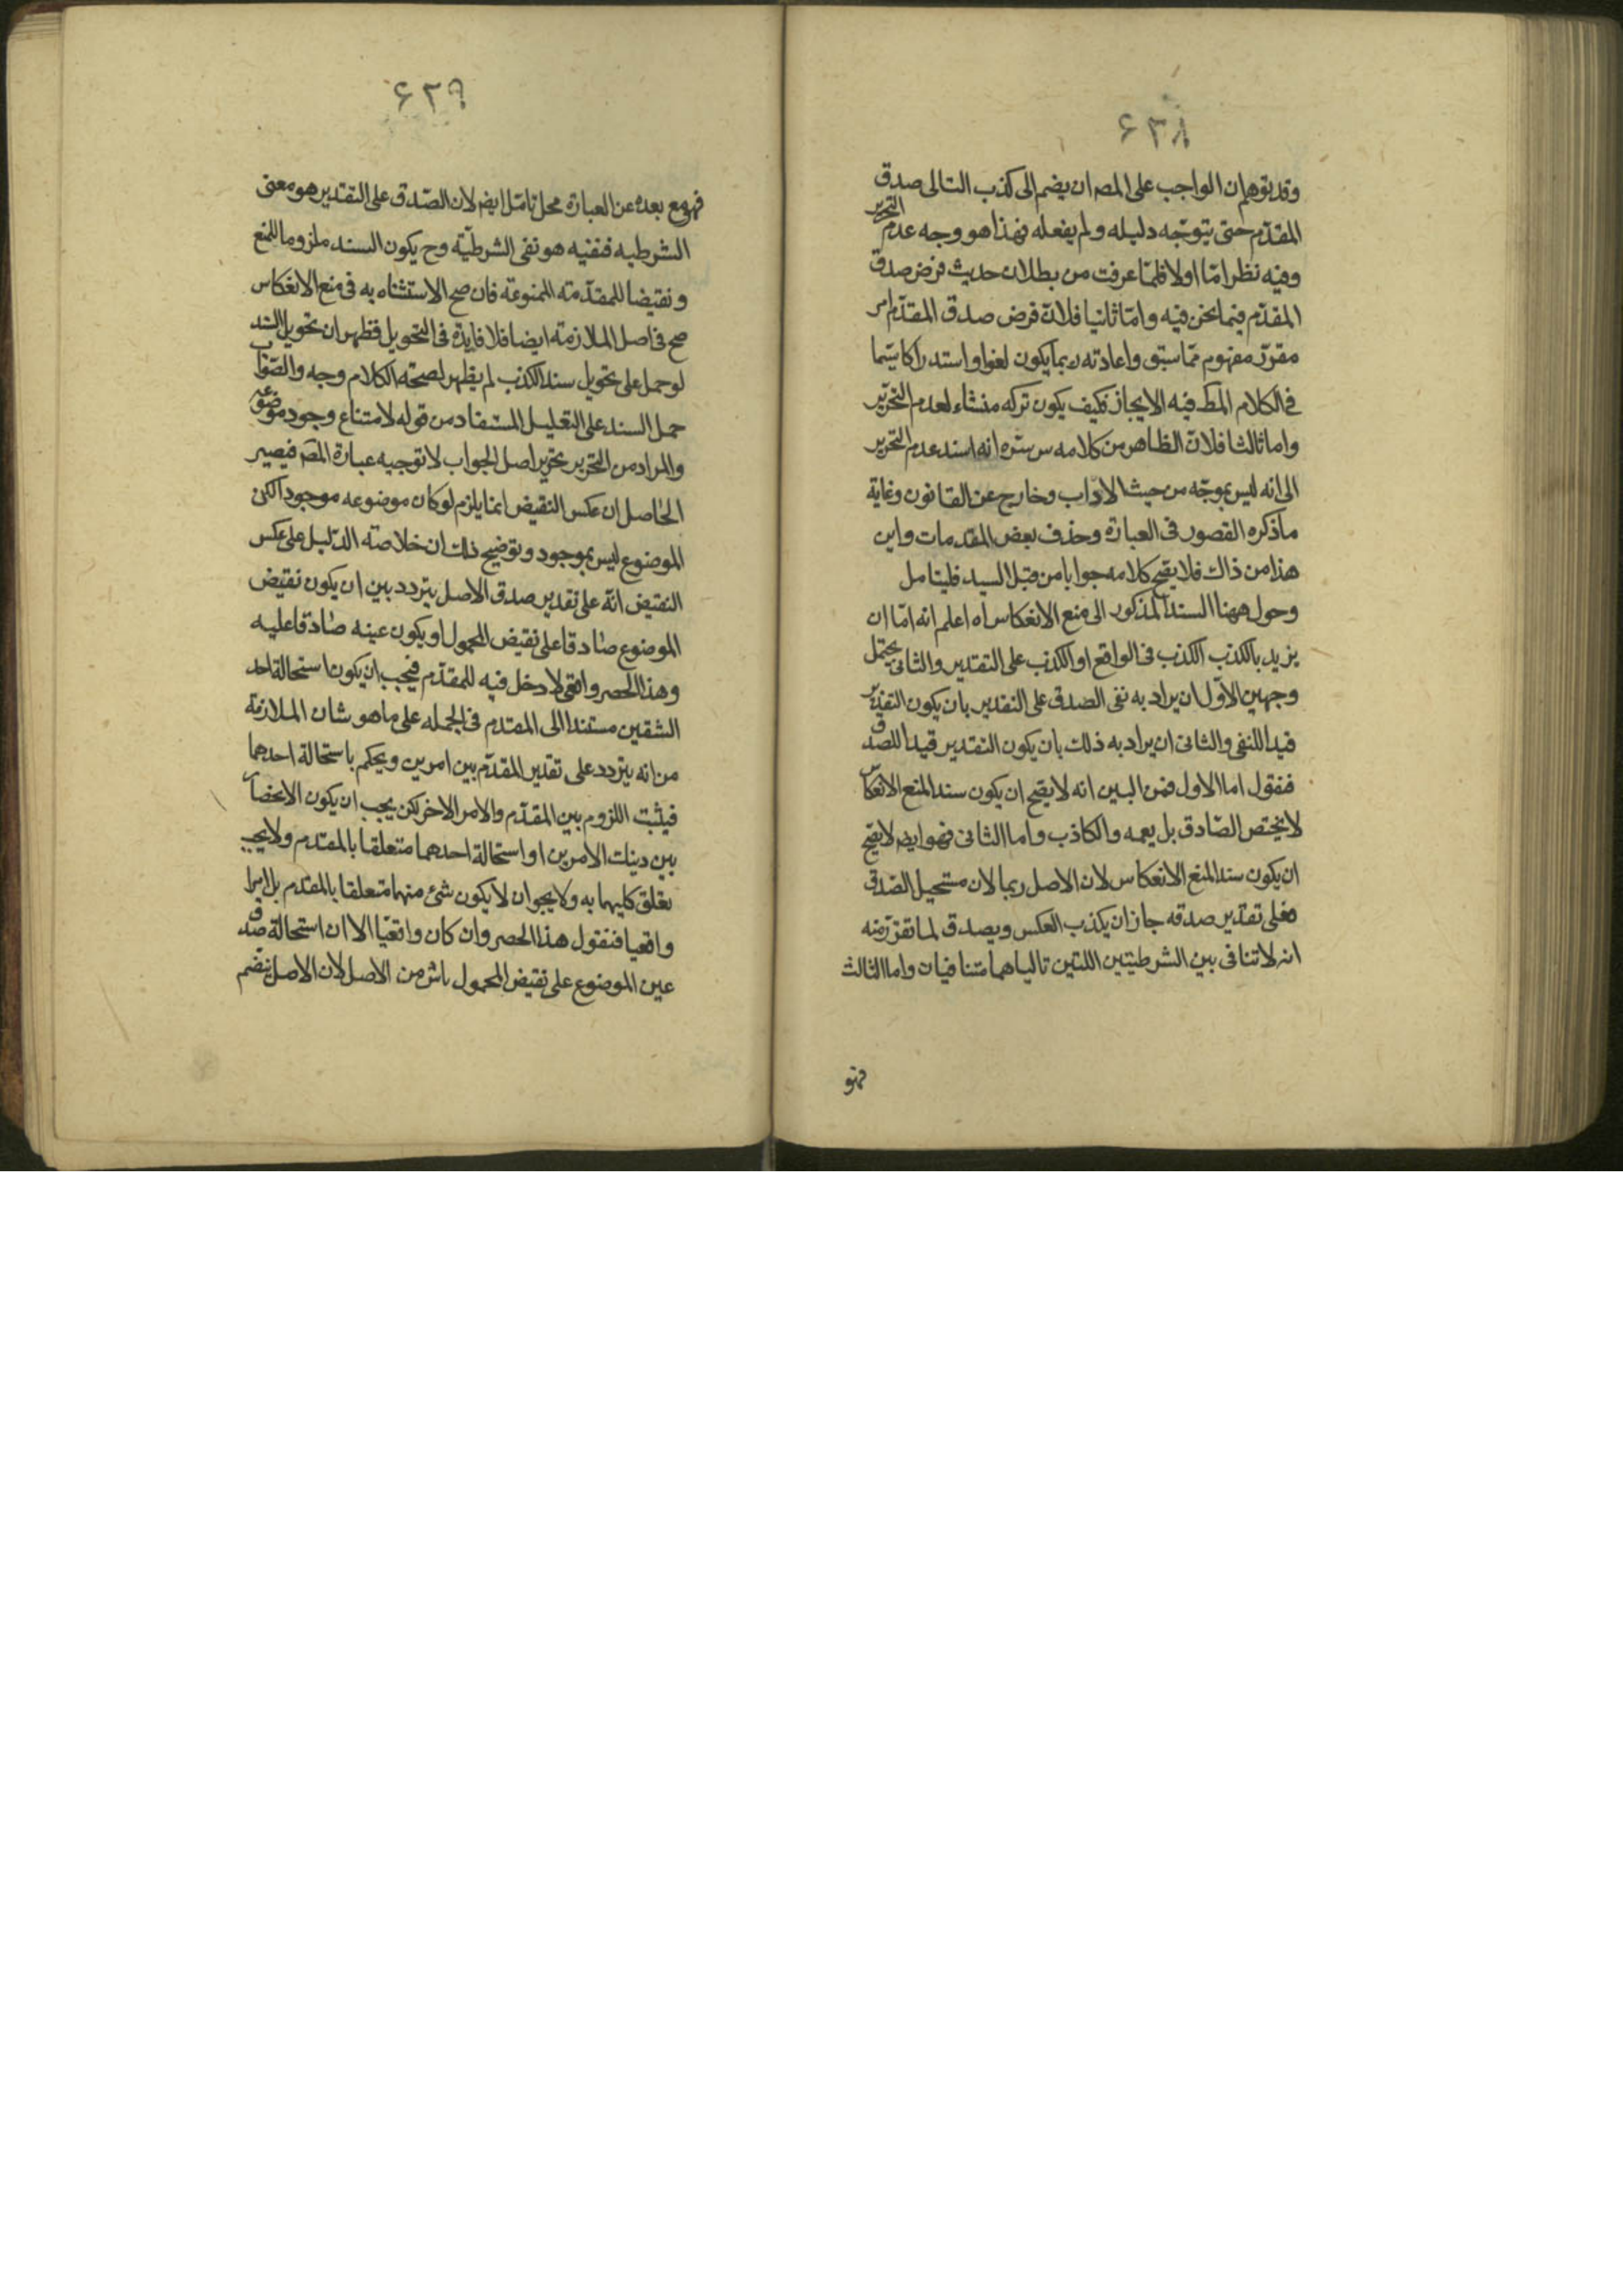 ۶۳۸
وقد يتوهم ان الواجب على المصـ ان يضم الى كذب التالى صدق
المقدّم حتى يتوجّه دليله ولم يفعله فهذا هو وجه عدم التحرير
وفيه نظر امّا اولا فلما عرفت من بطلان حديث فرض صدق
المقدّم فيما نحن فيه وامّا ثانيا فلانّ فرض صدق المقدّم امر
مقرّر مفهوم ممّا سبق واعادته ربما يكون لغوا واستدراكا سيّما
فى الكلام المط فيه الايجاز فكيف يكون تركه منشاء لعدم التحرير
واما ثالثا فلانّ الظاهر من كلامه س سره انه اسند عدم التحرير
الى انه ليس بموجّه من حيث الاداب وخارج عن القانون وغاية
ما ذكره القصور فى العبارة وحذف بعض المقدمات واين
هذا من ذاك فلا يصح كلامه جوابا من قبل السيد فليتامل
وحول ههنا السند المذكور الى منع الانعكاس اه اعلم انه امّا ان
يريد بالكذب الكذب فى الواقع او الكذب على التقدير والثانى يحتمل
وجهين الاوّل ان يراد به نفى الصدق على التقدير بان يكون التقدير
قيدا للنفى والثانى ان يراد به ذلك بان يكون التقدير قيدا للصدق
فنقول اما الاول فمن البين انه لا يصح ان يكون سند المنع الانعكاس
لا يختص الصّادق بل يعمه والكاذب واما الثانى فهو ايضـ لا يصح
ان يكون سند المنع الانعكاس لان الاصل ربما لان مستحيل الصدق
فعلى تقدير صدقه جاز ان يكذب العكس ويصدق لما تقرّر منه
انه لا تنافى بين الشرطيتين اللتين تالياهما متنافيان واما الثالث
فهو
۶۳۹
فهو مع بعده عن العبارة محل تامّل ايضـ لان الصّدق على التقدير هو معنى
الشرطيه فنفيه هو نفى الشرطيّة وح يكون السند ملزوما للمنع
ونقيضا للمقدّمة الممنوعة فان صح الاستثناء به فى منع الانعكاس
صح فى اصل الملازمة ايضا فلا فايدة فى التحويل فظهر ان تحويل السند
لو حمل على تحويل سند الكذب لم يظهر لصحة الكلام وجه والصّواب
حمل السند على التعليل المستفاد من قوله لامتناع وجود موضوعه
والمراد من التحرير تحرير اصل الجواب لا توجيه عبارة المصـ فيصير
الحاصل ان عكس النقيض انما يلزم لو كان موضوعه موجودا لكن
الموضوع ليس بموجود وتوضيح ذلك ان خلاصة الدّليل على عكس
النقيض انّه على تقدير صدق الاصل يتردد بين ان يكون نقيض
الموضوع صادقا على نقيض المحمول او يكون عينه صادقا عليه
وهذا الحصر واقعى لا دخل فيه للمقدّم فيجب ان يكون استحالة احد
الشقين مستندا الى المقدم فى الجمله على ما هو شان الملازمة
من انه يتردد على تقدير المقدّم بين امرين ويحكم باستحالة احدهما
فيثبت اللزوم بين المقدّم والامر الاخر لكن يجب ان يكون الانحصار
بين دينك الامرين او استحالة احدهما متعلقا بالمقدم ولا يجب
تعلق كليهما به ولا يجوز ان لا يكون شئ منهما متعلقا بالمقدم بل امرا
واقعيا فنقول هذا الحصر وان كان واقعيّا الا ان استحالة صدق
عين الموضوع على نقيض المحمول ناش من الاصل لان الاصل ينضم